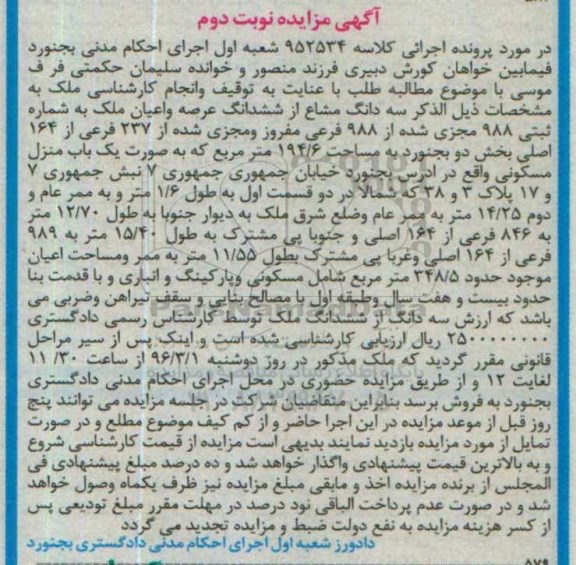 آگهی مزایده نوبت دوم
در مورد پرونده اجرائی کلاسه ۹۵۲۵۳۴ شعبه اول اجرای احکام مدنی بجنورد
فیمابین خواهان کورش دبیری فرزند منصور و خوانده سلیمان حکمتی فر ف
موسی با موضوع مطالبه طلب با عنایت به توقیف وانجام کارشناسی ملک به
مشخصات ذیل الذکر سه دانگ مشاع از ششدانگ عرصه واعیان ملک به شماره
ثبتی ۹۸۸ مجزی شده از ۹۸۸ فرعی مفروز ومجزی شده از ۲۳۷ فرعی از ۱۶۴
اصلی بخش دو بجنورد به مساحت ۱۹۴/۶ متر مربع که به صورت یک باب منزل
مسکونی واقع در ادرس بجنورد خیابان جمهوری جمهوری ۷ نبش جمهوری ۷
و ۱۷ پلاک ۳ و ۳۸ که شمالا در دو قسمت اول به طول ۱/۶ متر و به ممر عام و
دوم ۱۴/۲۵ متر به ممر عام وضلع شرق ملک به دیوار جنوبا به طول ۱۲/۷۰ متر
به ۸۴۶ فرعی از ۱۶۴ اصلی و جنوبا پی مشترک به طول ۱۵/۴۰ متر به ۹۸۹
فرعی از ۱۶۴ اصلی وغربا پی مشترک بطول ۱۱/۵۵ متر به ممر ومساحت اعیان
موجود حدود ۳۴۸/۵ متر مربع شامل مسکونی وپارکینگ و انباری و با قدمت بنا
حدود بیست و هفت سال وطبقه اول با مصالح بنایی و سقف تیراهن وضربی می
باشد که ارزش سه دانگ از ششدانگ ملک توسط کارشناس رسمی دادگستری
۲۵۰۰۰۰۰۰۰۰ ریال ارزیابی کارشناسی شده است و اینک پس از سیر مراحل
قانونی مقرر گردید که ملک مذکور در روز دوشنبه ۹۶/۳/۱ از ساعت ۱۱/۳۰
لغایت ۱۲ و از طریق مزایده حضوری در محل اجرای احکام مدنی دادگستری
بجنورد به فروش برسد بنابراین متقاضیان شرکت در جلسه مزایده می توانند پنج
روز قبل از موعد مزایده در این اجرا حاضر و از کم کیف موضوع مطلع و در صورت
تمایل از مورد مزایده بازدید نمایند بدیهی است مزایده از قیمت کارشناسی شروع
و به بالاترین قیمت پیشنهادی واگذار خواهد شد و ده درصد مبلغ پیشنهادی فی
المجلس از برنده مزایده اخذ و مابقی مبلغ مزایده نیز ظرف یکماه وصول خواهد
شد و در صورت عدم پرداخت الباقی نود درصد در مهلت مقرر مبلغ تودیعی پس
از کسر هزینه مزایده به نفع دولت ضبط و مزایده تجدید می گردد
دادورز شعبه اول اجرای احکام مدنی دادگستری بجنورد
۵۷۹